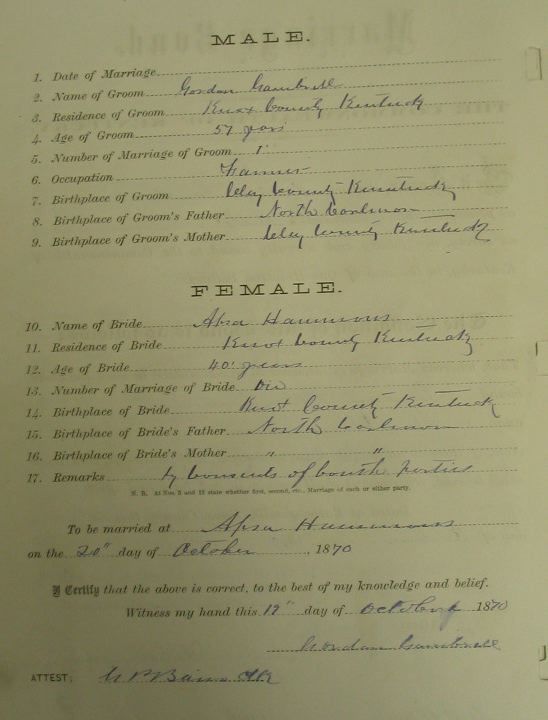 MALE.
1. Date of Marriage
2. Name of Groom Gordon Gambrell
3. Residence of Groom Knox County Kentucky
4. Age of Groom 57 years
5. Number of Marriage of Groom 1
6. Occupation Farmer
7. Birthplace of Groom Clay County Kentucky
8. Birthplace of Groom's Father North
9. Birthplace of Groom's Mother Clay County Kentucky
FEMALE.
10. Name of Bride Apsa Hammons
11. Residence of Bride Knox County Kentucky
12. Age of Bride 40 years
13. Number of Marriage of Bride
14. Birthplace of Bride Knox County Kentucky
15. Birthplace of Bride's Father North
16. Birthplace of Bride's Mother " "
17. Remarks by consents of parties
N. B. At Nos 5 and 13 state whether first, second, etc., Marriage of each or either party.
To be married at Apsa Hammons
on the 20" day of October, 1870
I Certify that the above is correct, to the best of my knowledge and belief.
Witness my hand this 12" day of October 1870
Gordon Gambrell
ATTEST: